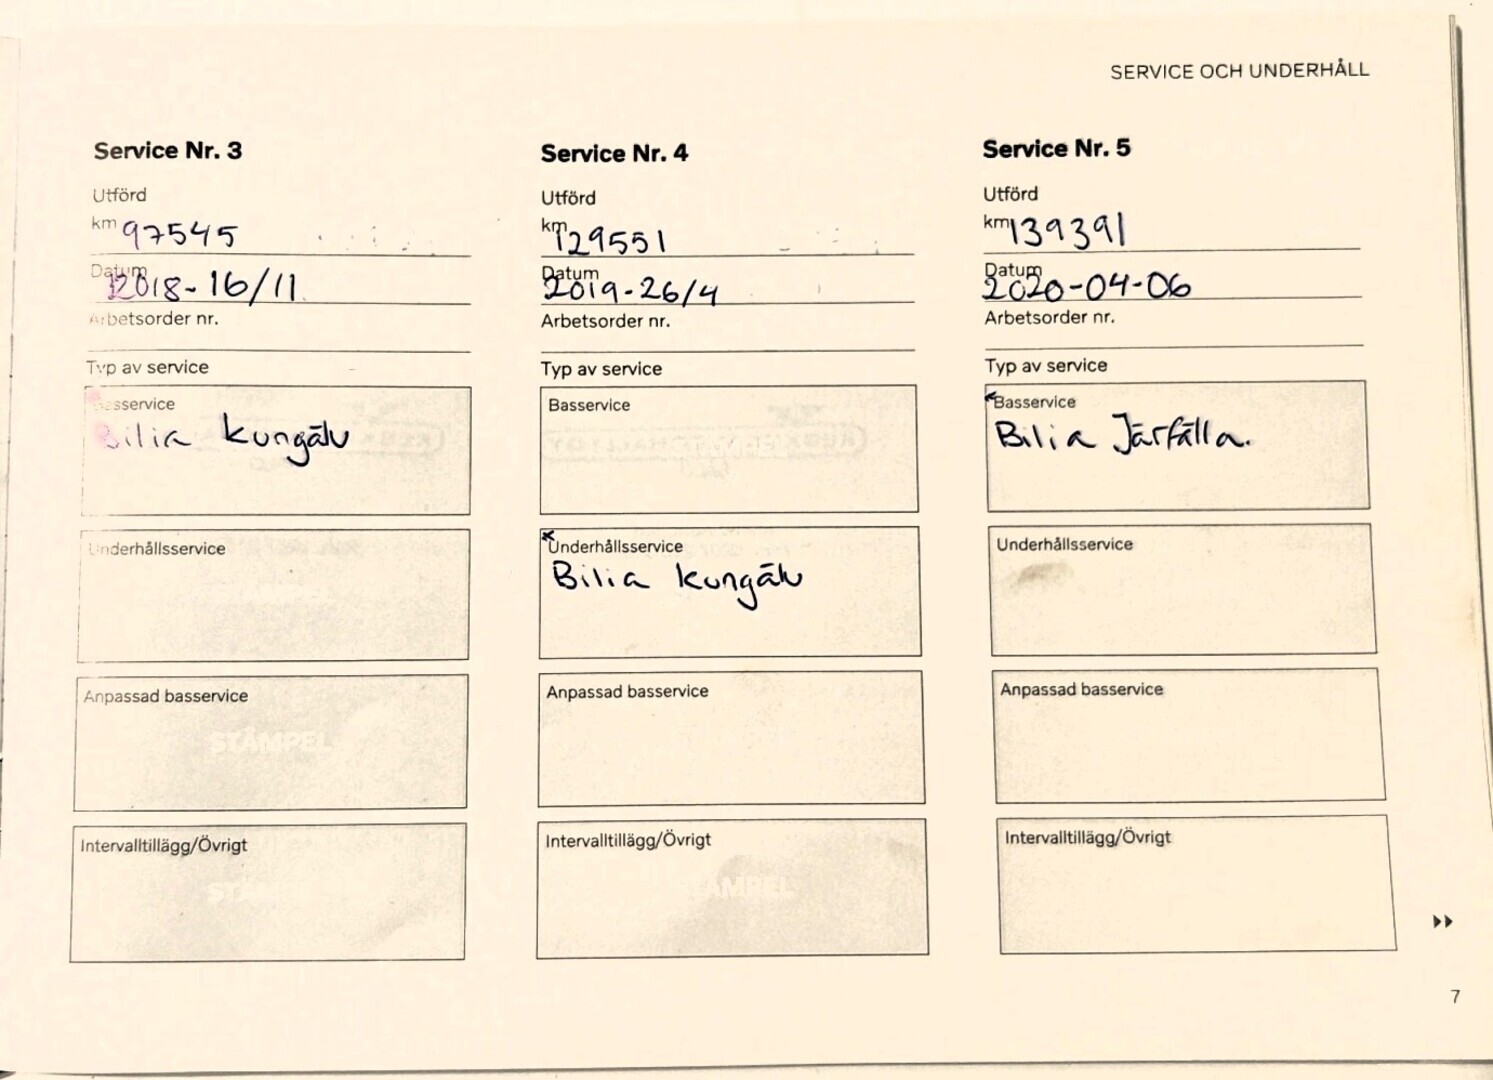 SERVICE OCH UNDERHÅLL
Service Nr. 3
Utförd
km 97545
Datum 2018-16/11
Arbetsorder nr.
Typ av service
Basservice
Bilia Kungälv
Underhållsservice
Anpassad basservice
STÄMPEL
Intervalltillägg/Övrigt
Service Nr. 4
Utförd
km 129551
Datum 2019-26/4
Arbetsorder nr.
Typ av service
Basservice
x Underhållsservice
Bilia Kungälv
Anpassad basservice
Intervalltillägg/Övrigt
Service Nr. 5
Utförd
km 139391
Datum 2020-04-06
Arbetsorder nr.
Typ av service
x Basservice
Bilia Järfälla.
Underhållsservice
Anpassad basservice
Intervalltillägg/Övrigt
7